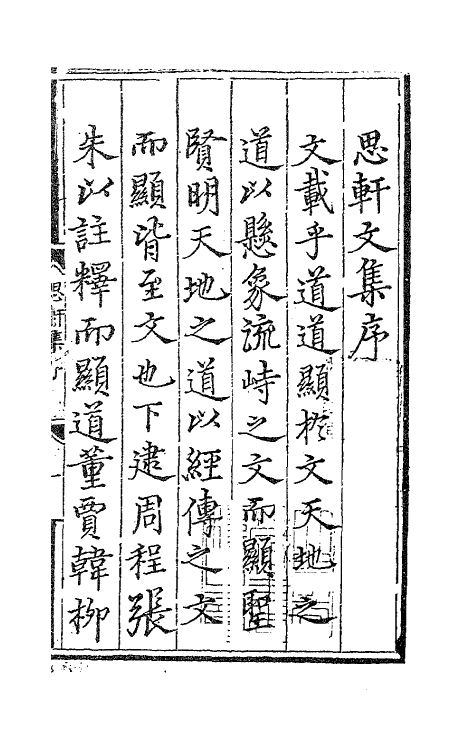 思軒文集序
文載乎道道顯於文天地之
道以懸象流峙之文而顯聖
賢明天地之道以經傳之文
而顯皆至文也下逮周程張
朱以註釋而顯道董賈韓柳
思軒集序